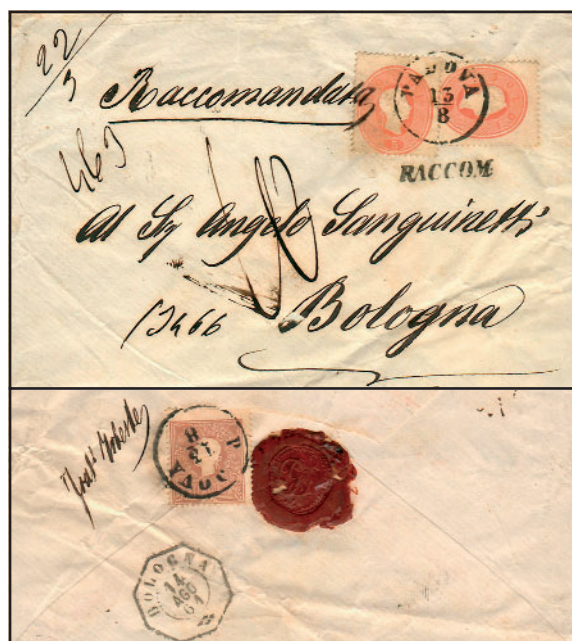 22/3
Raccomandata
PADOVA
13/8
RACCOM
463
10
Al Sig Angelo Sanguinetti
13466
Bologna
PADOVA
13
8
BOLOGNA
14
AGO
61